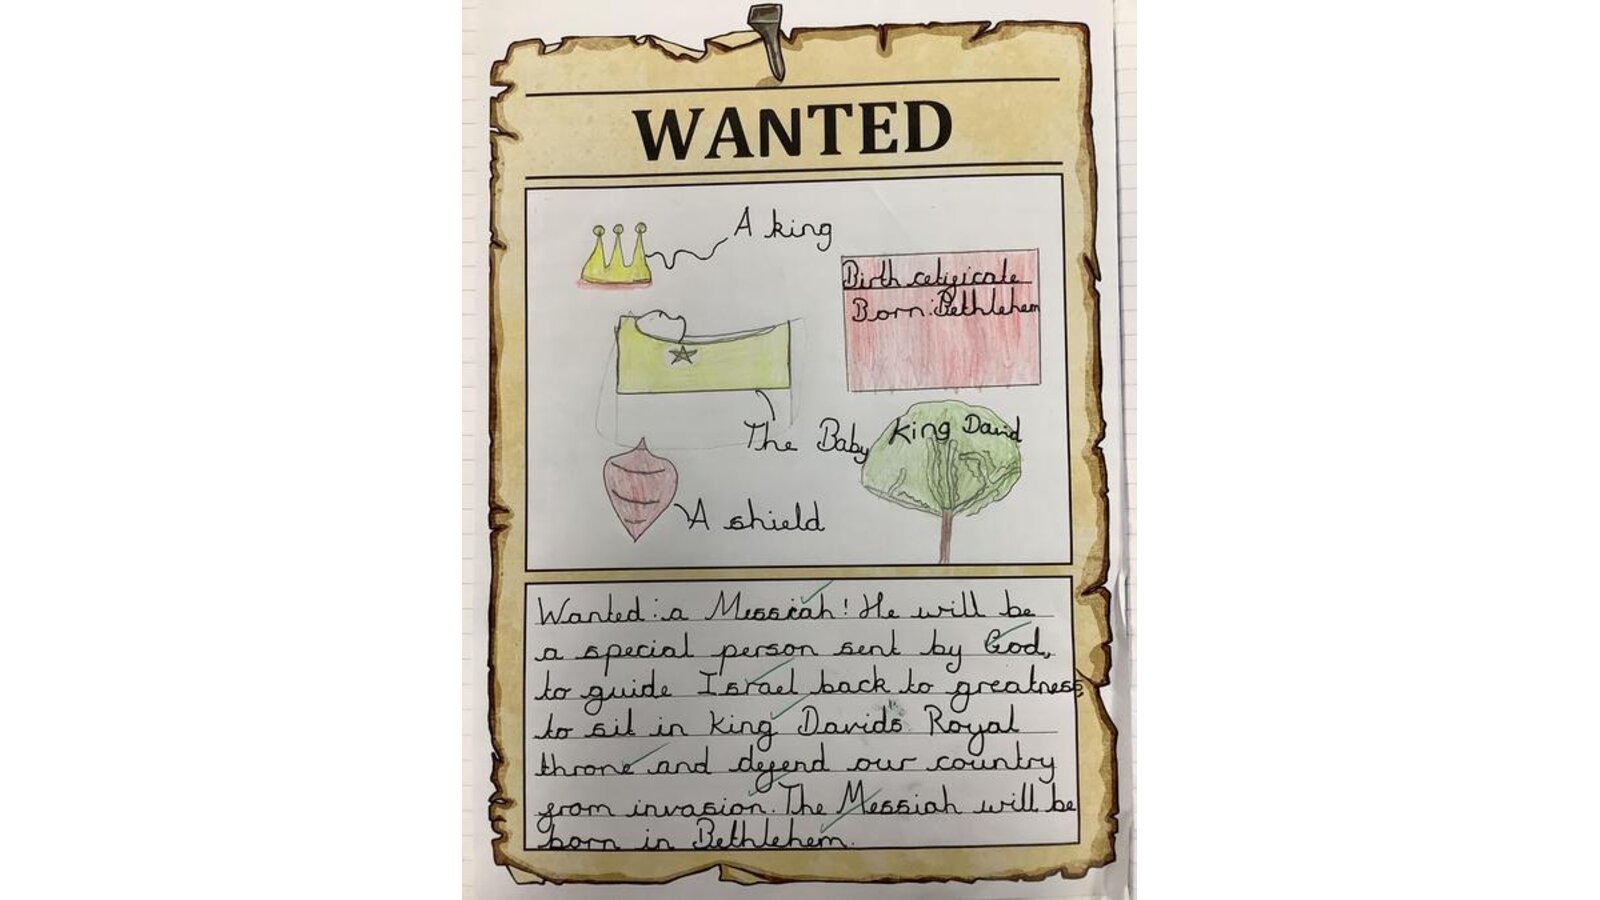 WANTED
A king
Birth cetificate
Born: Bethlehem
The Baby
King David
A shield
Wanted: a Messiah! He will be
a special person sent by God,
to guide Israel back to greatness
to sit in King Davids Royal
throne and defend our country
from invasion. The Messiah will be
born in Bethlehem.